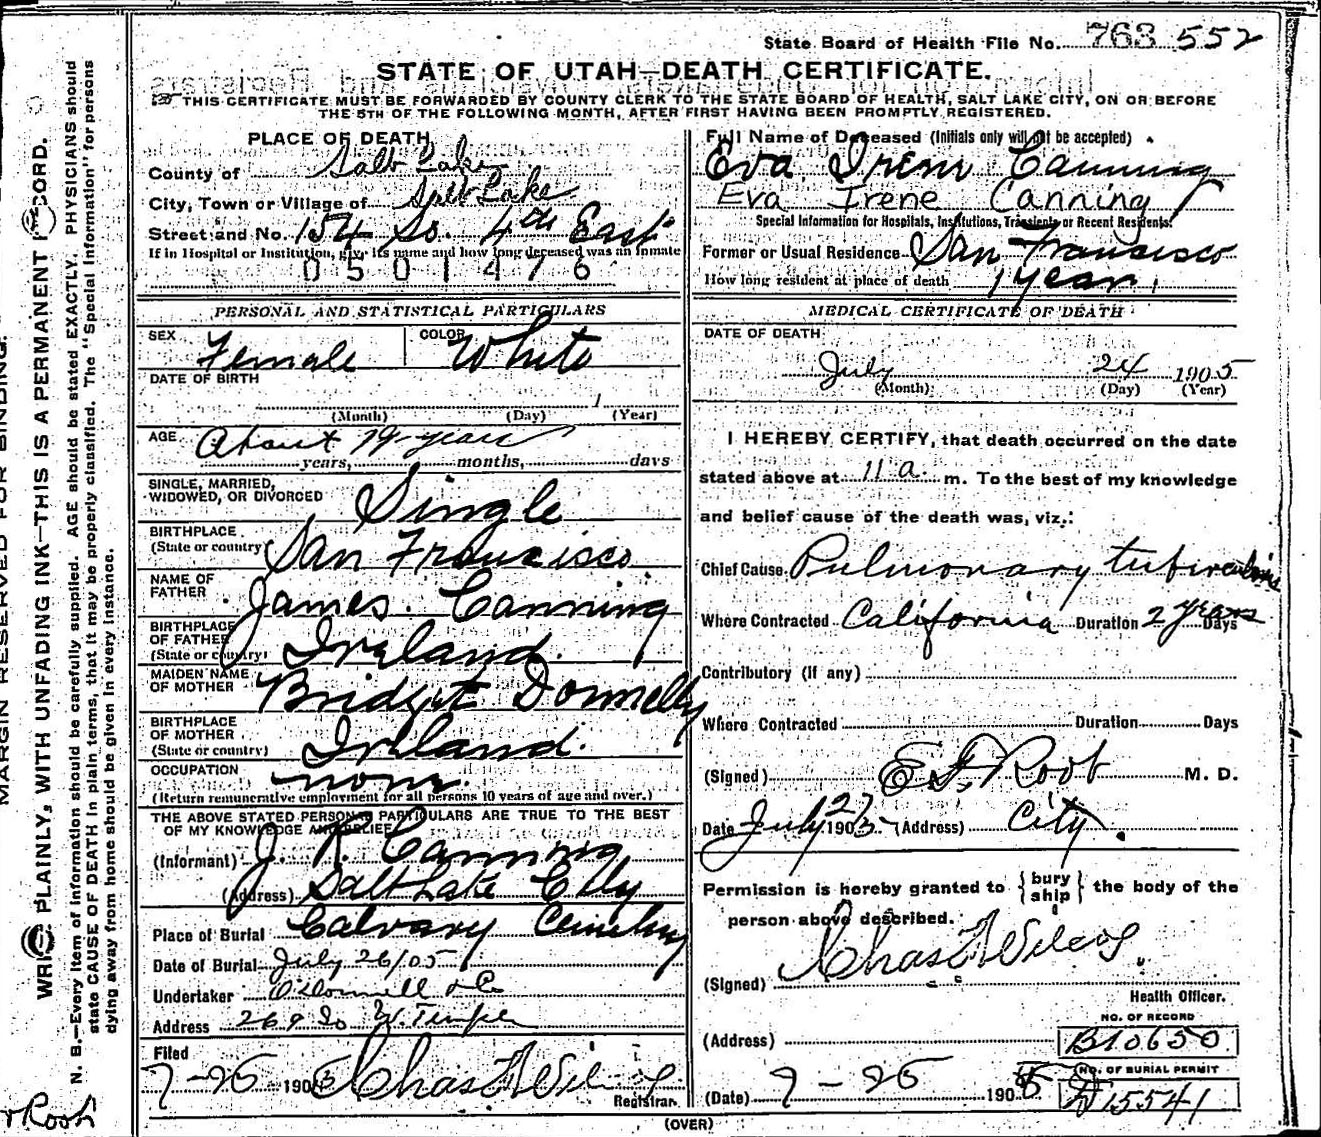 State Board of Health File No. 763 552
STATE OF UTAH—DEATH CERTIFICATE.
THIS CERTIFICATE MUST BE FORWARDED BY COUNTY CLERK TO THE STATE BOARD OF HEALTH, SALT LAKE CITY, ON OR BEFORE
THE 5TH OF THE FOLLOWING MONTH, AFTER FIRST HAVING BEEN PROMPTLY REGISTERED.
PLACE OF DEATH
County of Salt Lake
City, Town or Village of Salt Lake
Street and No. 154 So. 4th East
If in Hospital or Institution, give its name and how long deceased was an inmate
0501476
PERSONAL AND STATISTICAL PARTICULARS
SEX Female COLOR White
DATE OF BIRTH
(Month) (Day) (Year)
AGE About 19 years
years, months, days
SINGLE, MARRIED,
WIDOWED, OR DIVORCED Single
BIRTHPLACE
(State or country) San Francisco
NAME OF
FATHER James Canning
BIRTHPLACE
OF FATHER
(State or country) Ireland.
MAIDEN NAME
OF MOTHER Bridget Donnelly
BIRTHPLACE
OF MOTHER
(State or country) Ireland.
OCCUPATION none.
(Return remunerative employment for all persons 10 years of age and over.)
THE ABOVE STATED PERSONAL PARTICULARS ARE TRUE TO THE BEST
OF MY KNOWLEDGE AND BELIEF
(Informant) J. R. Canning
(Address) Salt Lake City
Place of Burial Calvary Cemetery
Date of Burial July 26/05
Undertaker O'Donnell & Co
Address 269 So W. Temple
Filed
7-26 1905 Chas F Wilcox
Registrar.
Full Name of Deceased (Initials only will not be accepted)
Eva Irene Canning
Eva Irene Canning
Special Information for Hospitals, Institutions, Transients or Recent Residents.
Former or Usual Residence San Francisco
How long resident at place of death 1 year.
MEDICAL CERTIFICATE OF DEATH
DATE OF DEATH
July 24 1905
(Month) (Day) (Year)
I HEREBY CERTIFY, that death occurred on the date
stated above at 11 a. m. To the best of my knowledge
and belief cause of the death was, viz.:
Chief Cause Pulmonary tuberculosis
Where Contracted California Duration 2 years Days
Contributory (if any)
Where Contracted Duration Days
(Signed) E F Root M. D.
Date July 1905 (Address) City.
Permission is hereby granted to { bury ship } the body of the
person above described.
(Signed) Chas F Wilcox
Health Officer.
(Address)
NO. OF RECORD
B10650
(Date) 7-26 1905
NO. OF BURIAL PERMIT
D15541
(OVER)
MARGIN RESERVED FOR BINDING.
WRITE PLAINLY, WITH UNFADING INK—THIS IS A PERMANENT RECORD.
N. B.—Every item of information should be carefully supplied. AGE should be stated EXACTLY. PHYSICIANS should
state CAUSE OF DEATH in plain terms, that it may be properly classified. The "Special Information" for persons
dying away from home should be given in every instance.
Root